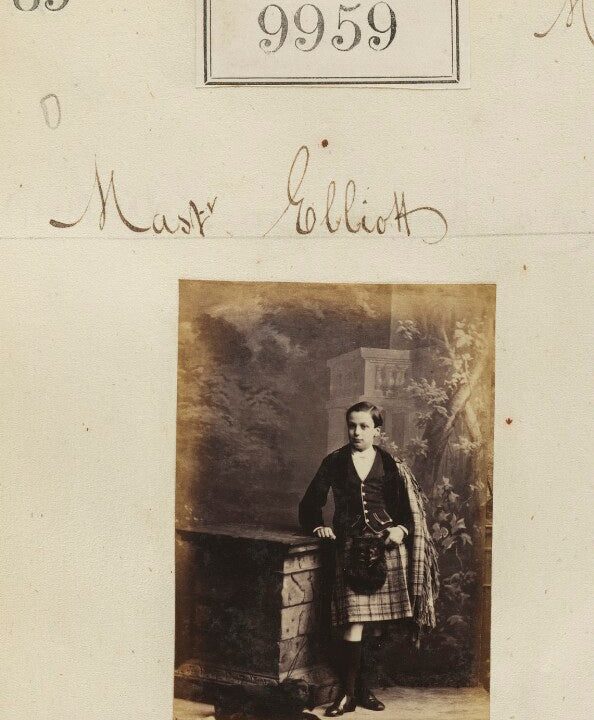 9959
Mastr. Elliott